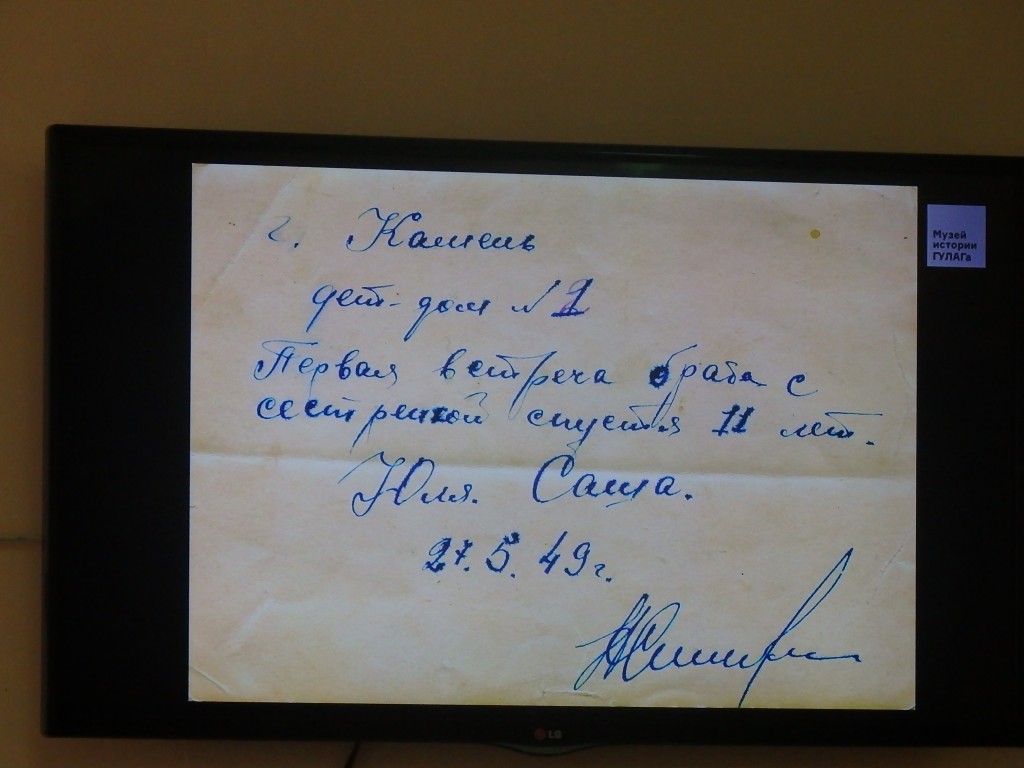 г. Камень
дет-дом №1
Первая встреча брата с
сестренкой спустя 11 лет.
Юля. Саша.
27.5.49г.
Музей
истории
ГУЛАГа
LG